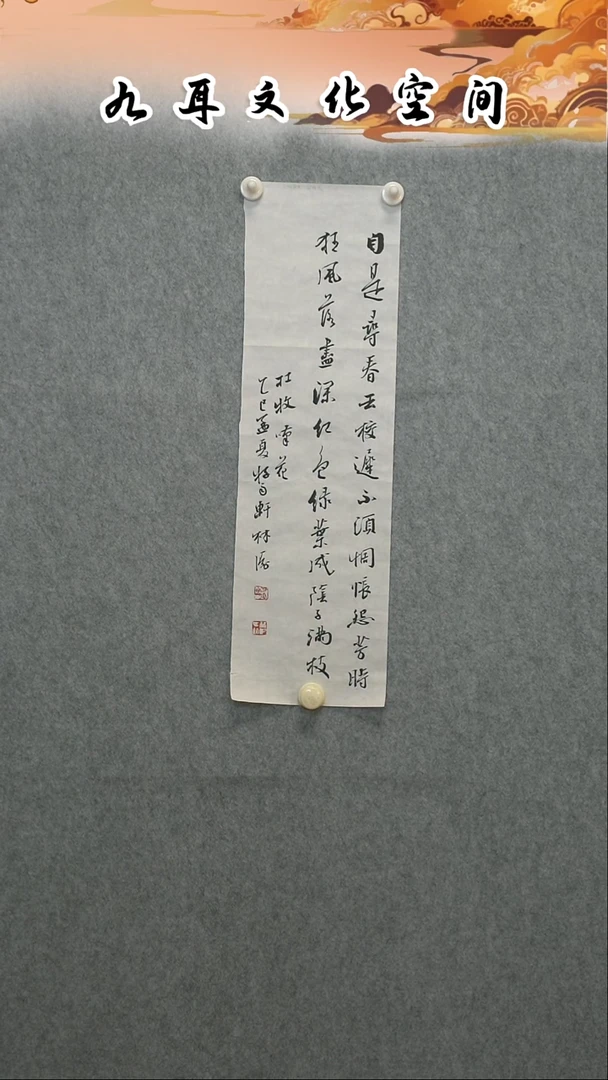 九耳文化空间
自是尋春去校遲不須惆悵怨芳時
狂風落盡深红色绿葉成陰子满枝
杜牧 花
乙巳孟夏 軒林